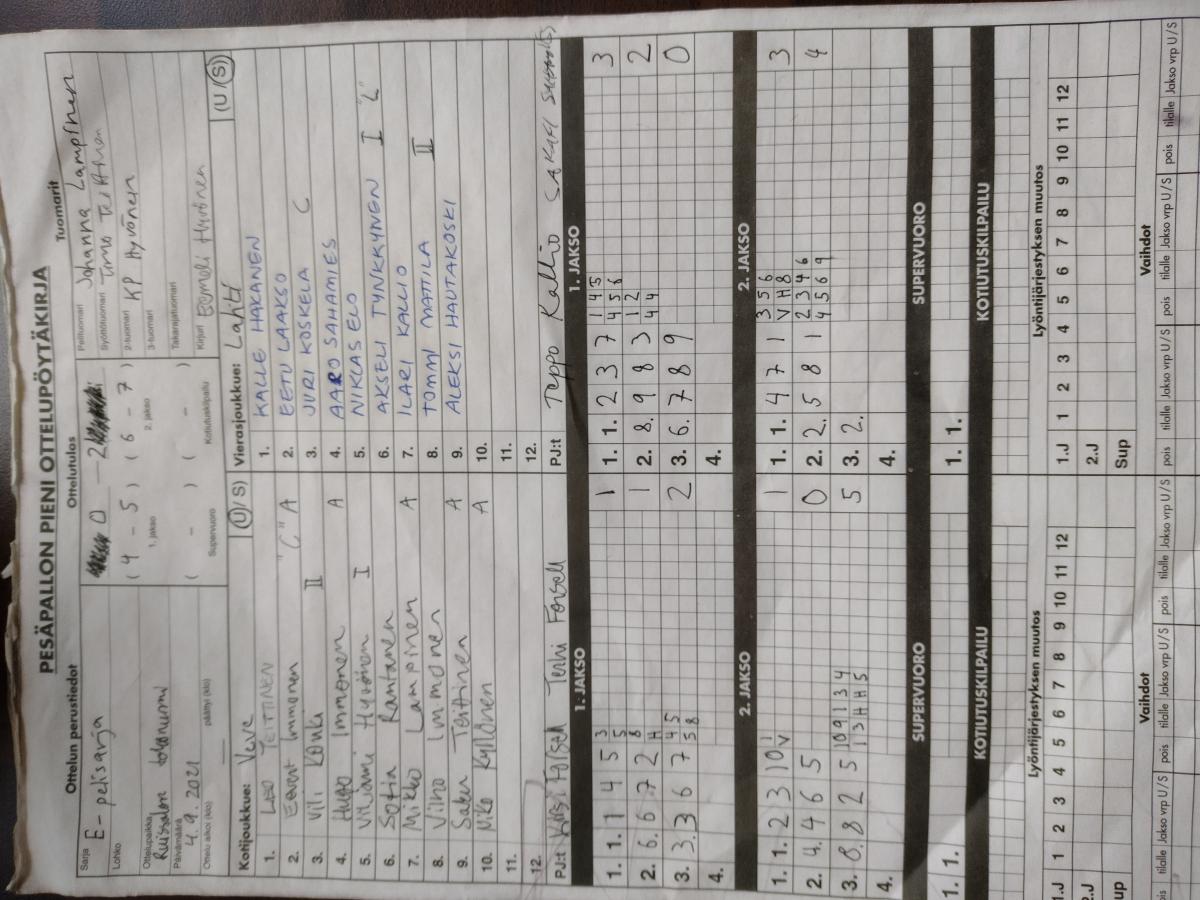 PESÄPALLON PIENI OTTELUPÖYTÄKIRJA
Ottelun perustiedot
Sarja E-pelisarja
Lohko
Ottelupaikka
Päivämäärä 4.9.2021
Ottelu alkoi (klo) päättyi (klo)
Ottelutulos
0 - 2
( 4 - 5 ) ( 6 - 7 )
1. jakso 2. jakso
( - ) ( - )
Supervuoro Kotiutuskilpailu
Tuomarit
Pelituomari Johanna Lampinen
Syöttötuomari Timo Teittinen
2-tuomari KP Hyvönen
3-tuomari
Takarajatuomari
Kirjuri Eemeli Hyvönen
Kotijoukkue: Veve (U/S)
1. LEO TEITTINEN
2. Eevert Immonen "C" A
3. Vili II
4. Hugo Immonen A
5. Viljami Hyvönen I
6. Sofia Rantanen
7. Mikko Lampinen A
8. Vilho Immonen
9. Saku Teittinen A
10. Niko Kyllönen A
11.
12.
PJ:t Forsell Terhi Forsell
Vierasjoukkue: Lahti (U/S)
1. KALLE HAKANEN
2. EETU LAAKSO
3. JURI KOSKELA C
4. AARO SAHAMIES
5. NIKLAS ELO
6. AKSELI TYNKKYNEN I "L"
7. ILARI KALLIO
8. TOMMI MATTILA II
9. ALEKSI HAUTAKOSKI
10.
11.
12.
PJ:t Teppo Kallio SAKARI
1. JAKSO
1. 1. 1 4 5 3 5 1
2. 6. 6 7 2 8 H 1
3. 3. 3 6 7 4 5 5 8 2
4.
1. JAKSO
1. 1. 2 3 7 1 4 5 4 5 6 3
2. 8. 9 8 3 1 2 4 4 2
3. 6. 7 8 9 0
4.
2. JAKSO
1. 1. 2 3 10 1 V 1
2. 4. 4 6 5 0
3. 8. 8 2 5 10 9 1 3 4 1 3 H H 5 5
4.
2. JAKSO
1. 1. 4 7 1 3 5 6 V H 8 3
2. 2. 5 8 1 2 3 4 6 4 5 6 9 4
3. 2.
4.
SUPERVUORO
1. 1.
SUPERVUORO
1. 1.
KOTIUTUSKILPAILU
KOTIUTUSKILPAILU
Lyöntijärjestyksen muutos
1.J 1 2 3 4 5 6 7 8 9 10 11 12
2.J
Sup
Lyöntijärjestyksen muutos
1.J 1 2 3 4 5 6 7 8 9 10 11 12
2.J
Sup
Vaihdot
pois tilalle Jakso vrp U/S pois tilalle Jakso vrp U/S pois tilalle Jakso vrp U/S
Vaihdot
pois tilalle Jakso vrp U/S pois tilalle Jakso vrp U/S pois tilalle Jakso vrp U/S